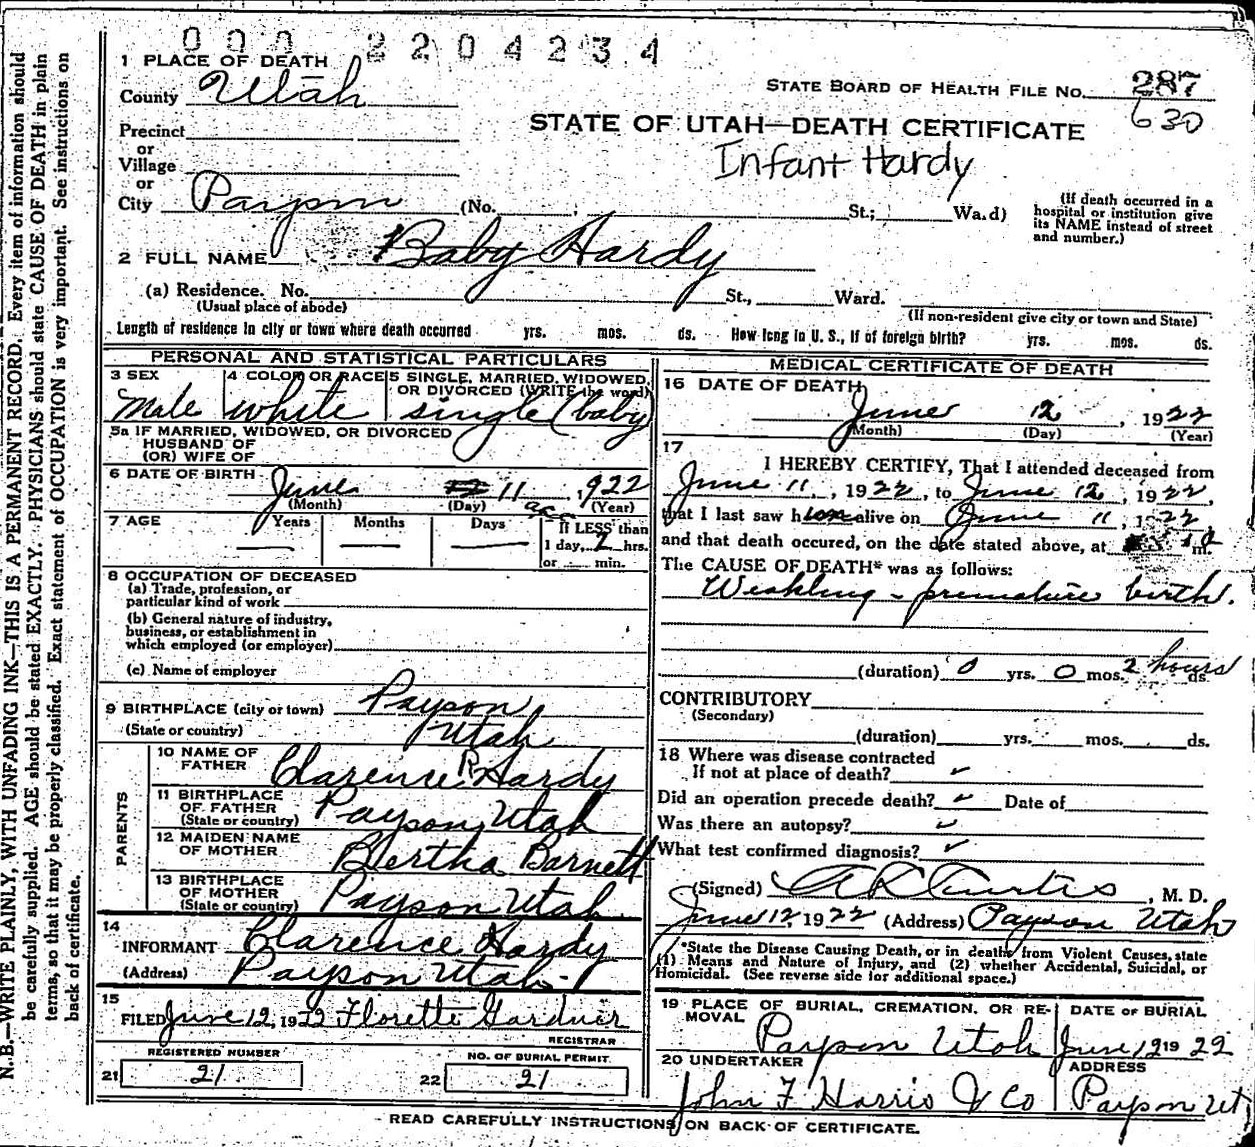 000 2204234
1 PLACE OF DEATH
County Utah
STATE BOARD OF HEALTH FILE NO. 287
630
STATE OF UTAH—DEATH CERTIFICATE
Infant Hardy
Precinct
or
Village
or
City Payson (No. ; St.; Ward)
(If death occurred in a
hospital or institution give
its NAME instead of street
and number.)
2 FULL NAME Baby Hardy
(a) Residence. No. St., Ward.
(Usual place of abode)
(If non-resident give city or town and State)
Length of residence in city or town where death occurred yrs. mos. ds. How long in U. S., if of foreign birth? yrs. mos. ds.
PERSONAL AND STATISTICAL PARTICULARS
3 SEX
Male
4 COLOR OR RACE
white
5 SINGLE, MARRIED, WIDOWED,
OR DIVORCED (WRITE the word)
single (baby)
5a IF MARRIED, WIDOWED, OR DIVORCED
HUSBAND OF
(OR) WIFE OF
6 DATE OF BIRTH June 11, 1922
(Month) (Day) (Year)
7 AGE Years Months Days
If LESS than
1 day, 2 hrs.
or min.
8 OCCUPATION OF DECEASED
(a) Trade, profession, or
particular kind of work
(b) General nature of industry,
business, or establishment in
which employed (or employer)
(c) Name of employer
9 BIRTHPLACE (city or town) Payson
(State or country) Utah
PARENTS
10 NAME OF
FATHER Clarence R Hardy
11 BIRTHPLACE
OF FATHER
(State or country) Payson, Utah
12 MAIDEN NAME
OF MOTHER Bertha Barnett
13 BIRTHPLACE
OF MOTHER
(State or country) Payson Utah
14
INFORMANT Clarence Hardy
(Address) Payson Utah.
15
FILED June 12, 1922 Florette Gardner
REGISTRAR
REGISTERED NUMBER
21 21
NO. OF BURIAL PERMIT
22 21
MEDICAL CERTIFICATE OF DEATH
16 DATE OF DEATH
June 12, 1922
(Month) (Day) (Year)
17
I HEREBY CERTIFY, That I attended deceased from
June 11, 1922, to June 12, 1922,
that I last saw him alive on June 11, 1922,
and that death occured, on the date stated above, at m.
The CAUSE OF DEATH* was as follows:
Weakling - premature birth.
(duration) 0 yrs. 0 mos. 2 hours ds.
CONTRIBUTORY
(Secondary)
(duration) yrs. mos. ds.
18 Where was disease contracted
If not at place of death? ✓
Did an operation precede death? ✓ Date of
Was there an autopsy? ✓
What test confirmed diagnosis? ✓
(Signed) A L Curtis, M. D.
June 12, 1922 (Address) Payson Utah
*State the Disease Causing Death, or in deaths from Violent Causes, state
(1) Means and Nature of Injury, and (2) whether Accidental, Suicidal, or
Homicidal. (See reverse side for additional space.)
19 PLACE OF BURIAL, CREMATION, OR RE-
MOVAL
Payson Utah
DATE OF BURIAL
June 12 1922
20 UNDERTAKER
John F Harris & Co
ADDRESS
Payson Ut
READ CAREFULLY INSTRUCTIONS ON BACK OF CERTIFICATE.
N.B.—WRITE PLAINLY, WITH UNFADING INK—THIS IS A PERMANENT RECORD. Every item of information should
be carefully supplied. AGE should be stated EXACTLY. PHYSICIANS should state CAUSE OF DEATH in plain
terms, so that it may be properly classified. Exact statement of OCCUPATION is very important. See instructions on
back of certificate.